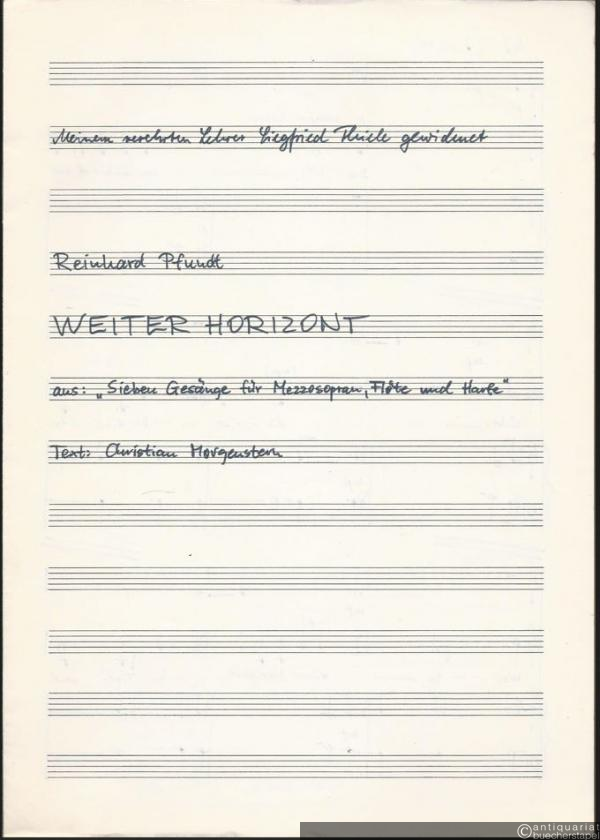 Meinem verehrten Lehrer Siegfried Thiele gewidmet
Reinhard Pfundt
WEITER HORIZONT
aus: „Sieben Gesänge für Mezzosopran, Flöte und Harfe“
Text: Christian Morgenstern
©antiquariat
buecherstapel